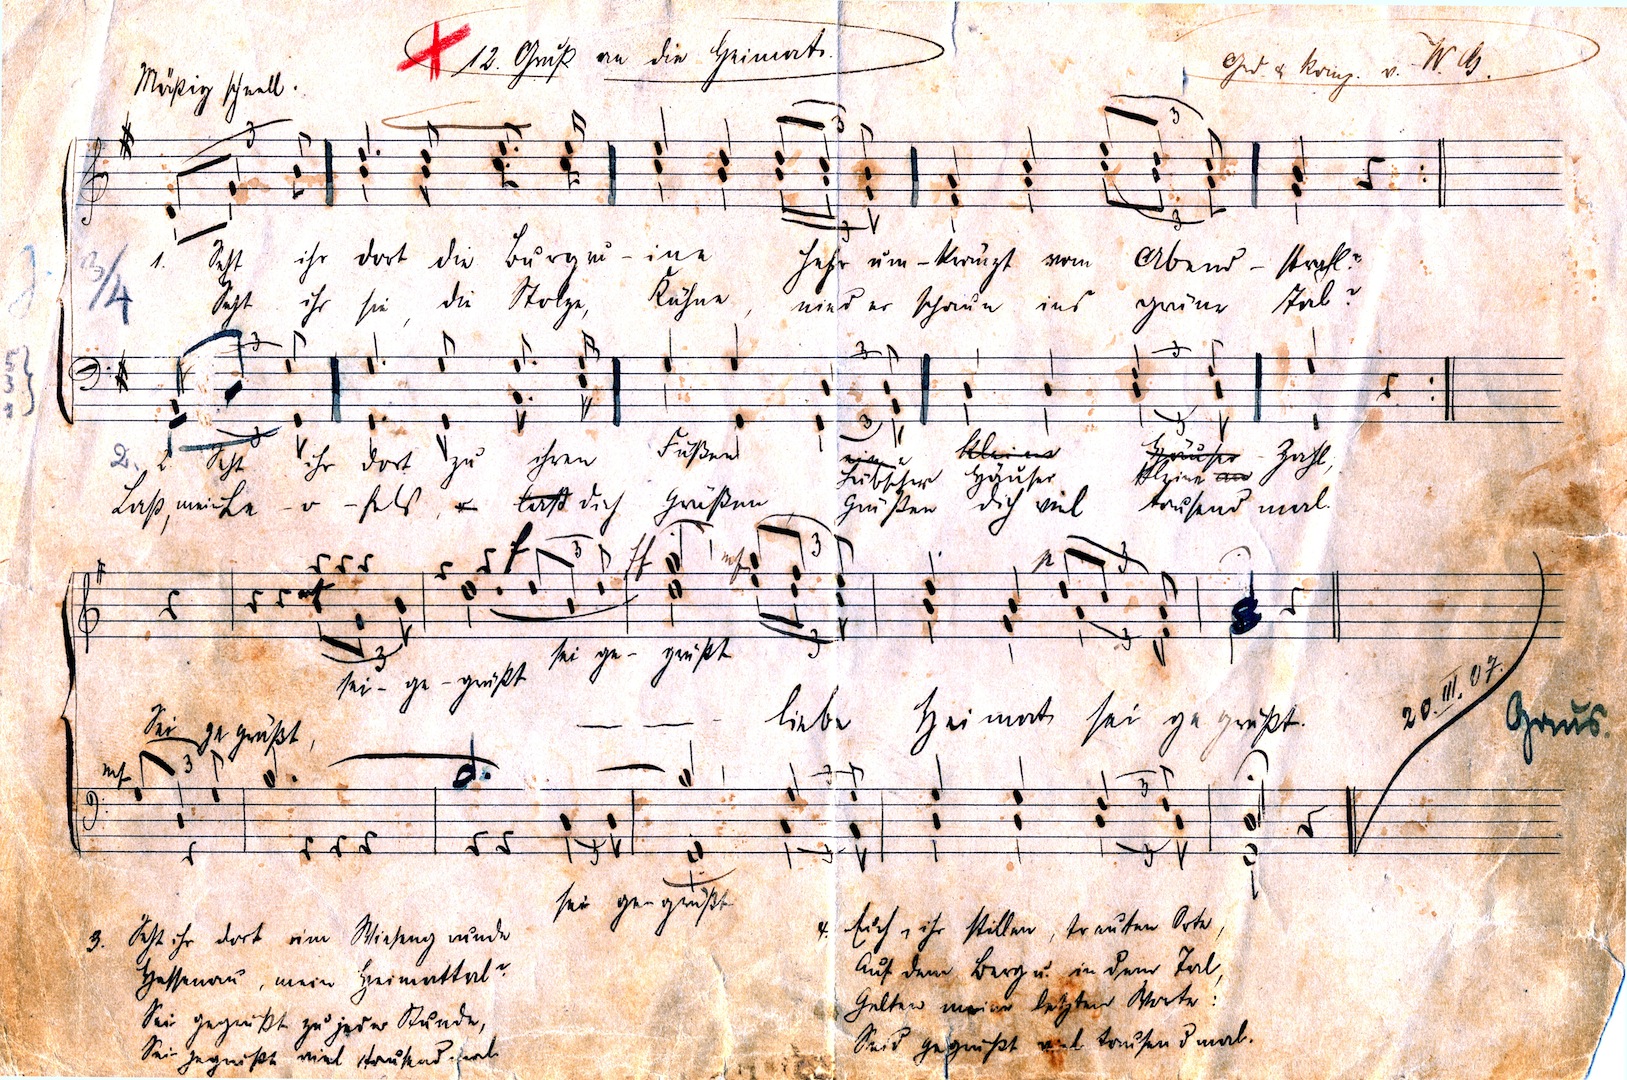 12. Gruß an die Heimat.
Ged. & komp. v. W. G.
Mäßig schnell.
3/4
1. Seht ihr dort die Burgru-ine hehr um-kränzt vom Abend-strahl?
Seht ihr sie, die Stolze, Kühne, nieder schaun ins grüne Tal?
2. Seht ihr dort zu ihren Füßen kleine Häuser-Zahl,
hübscher Häuser kleine
Laß, mein Le-o-fels, laß dich grüßen Grüßen dich viel tausend mal.
f ff mf p
sei ge-grüßt
sei-ge-grüßt
Sei gegrüßt, — — liebe Heimat sei gegrüßt.
20.III.07.
mf
sei ge-grüßt
3. Seht ihr dort im Wiesengrunde
Hessenau, mein Heimattal?
Sei gegrüßt zu jeder Stunde,
Sei gegrüßt viel tausendmal
4. Euch, ihr stillen, trauten Orte,
Auf dem Berg u. in dem Tal,
Gelten meine letzten Worte:
Seid gegrüßt viel tausendmal.